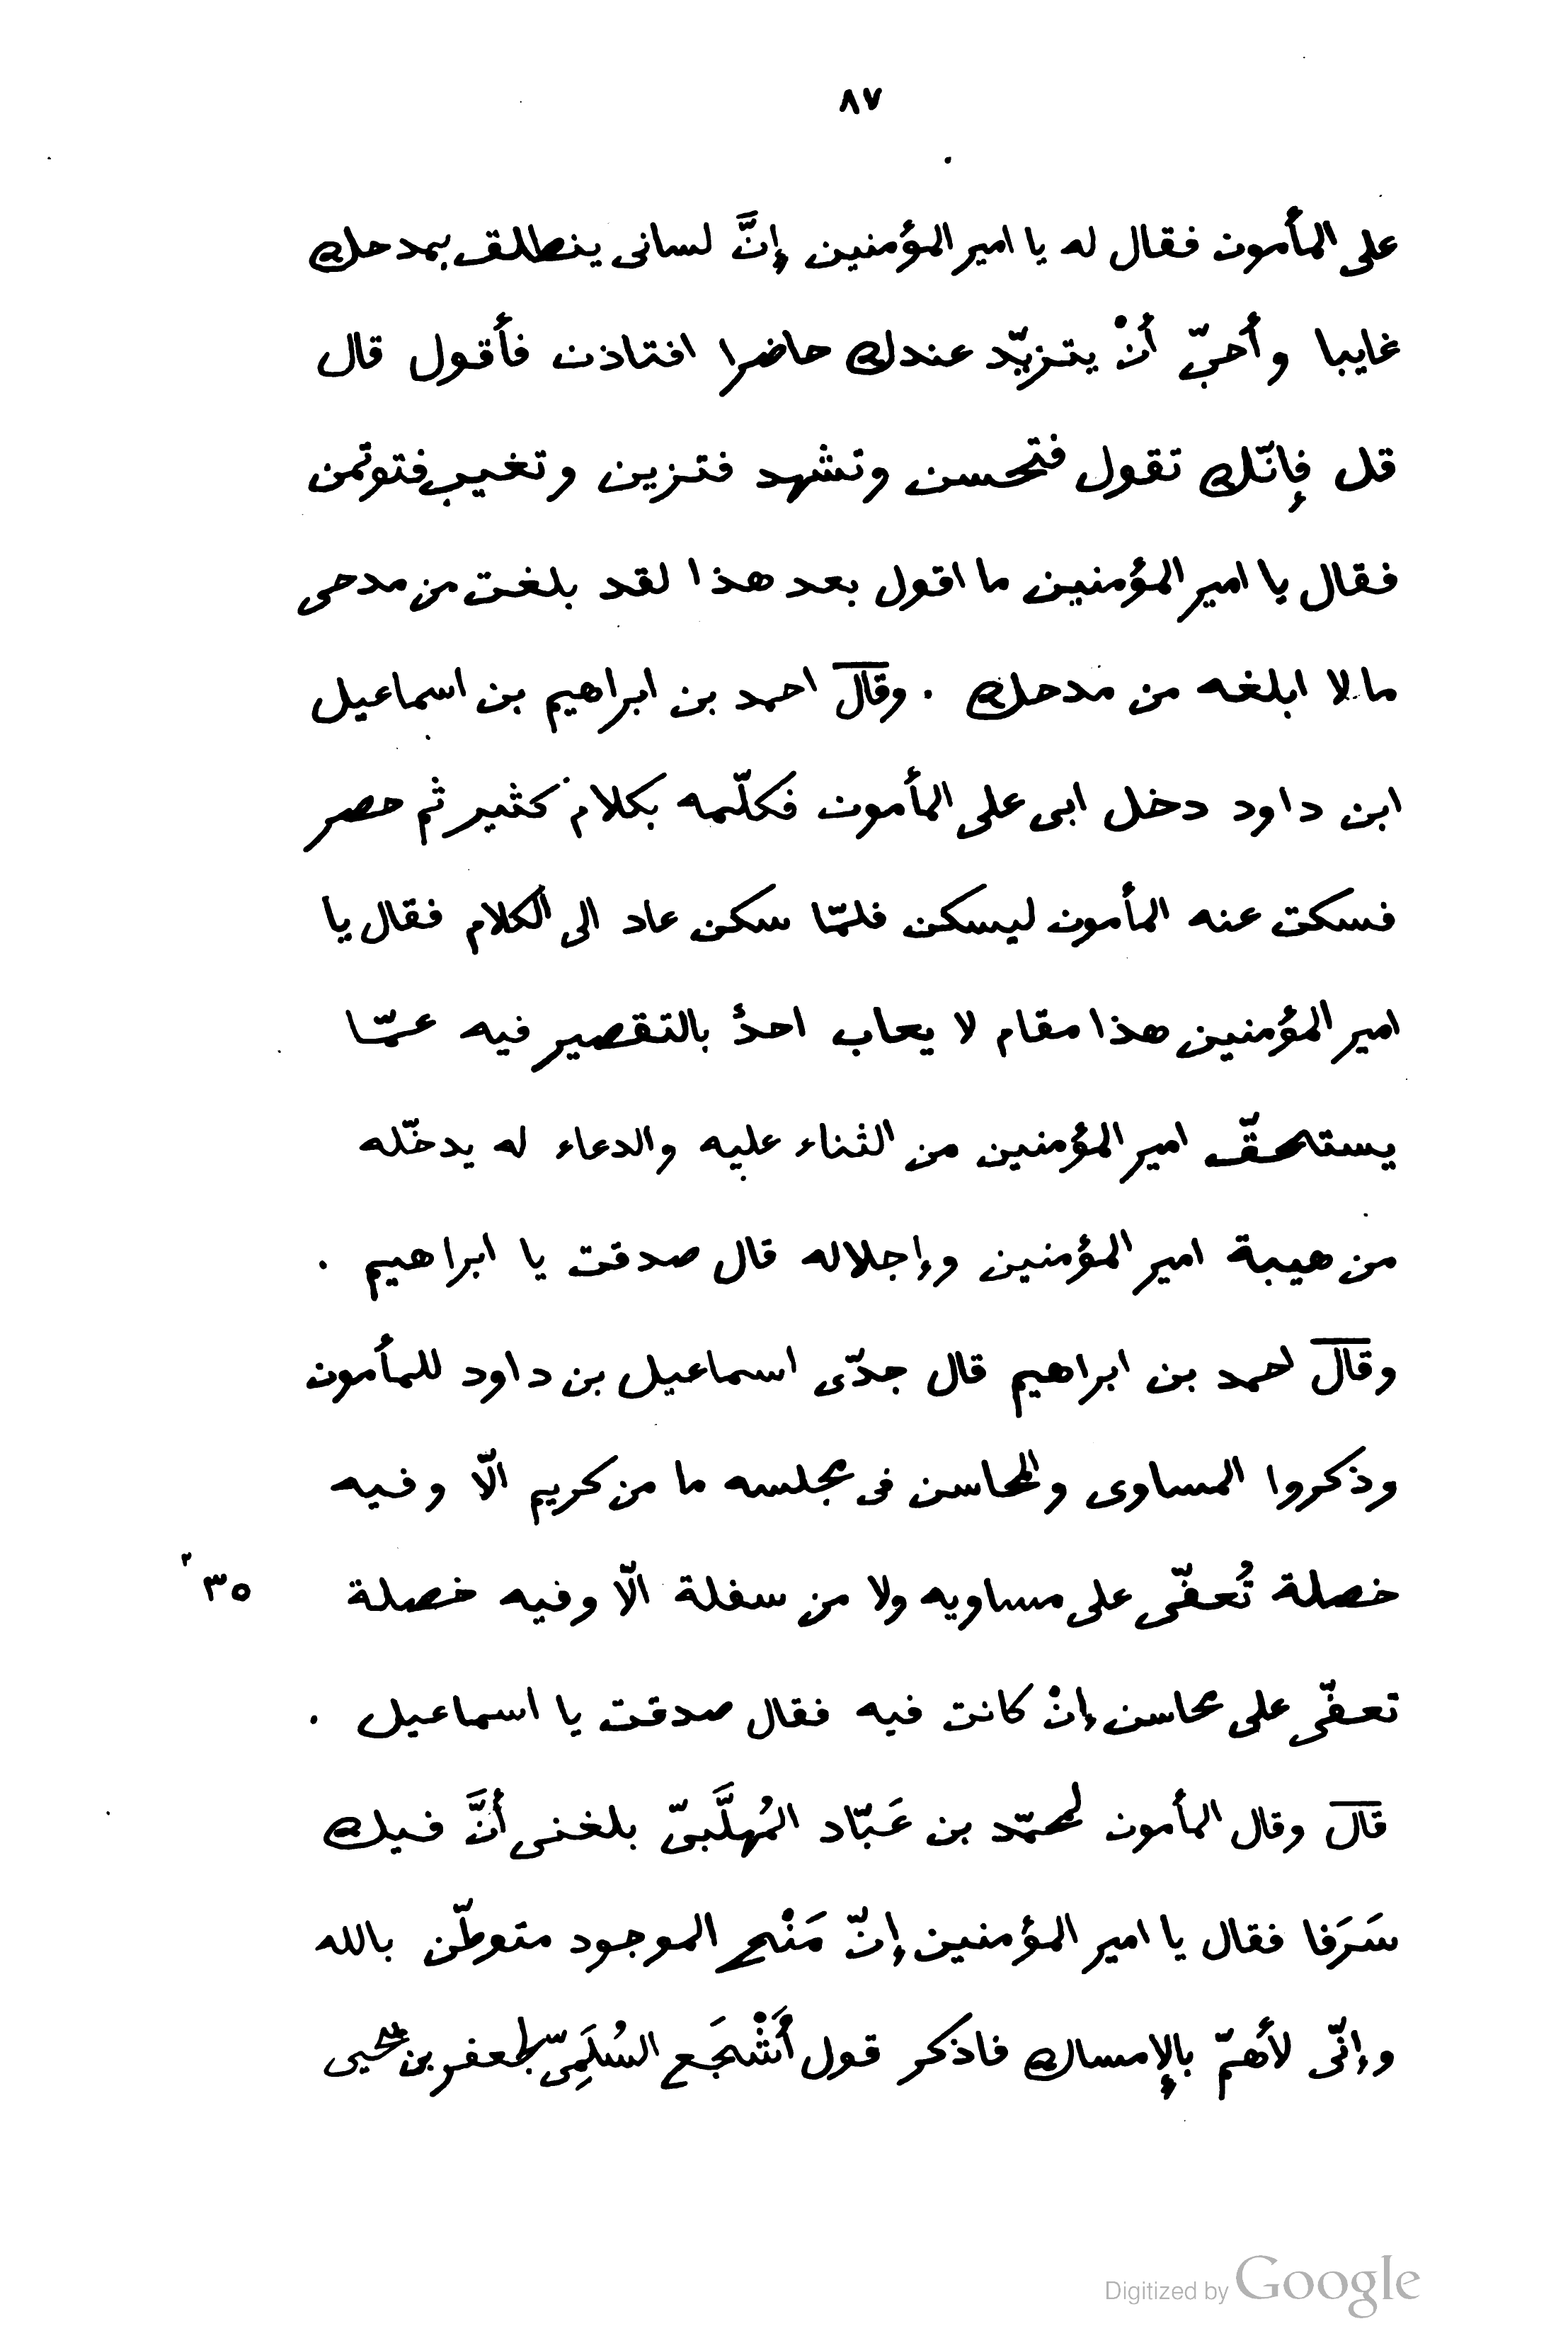 ٨٧
على المأمون فقال له يا امير المؤمنين إنَّ لسانى ينطلق بمدحك
غايبا وأحبّ أنْ يتزيّد عندك حاضرا افتاذن فأقول قال
قل فإنّك تقول فتحسن وتشهد فتزين وتغيب فتوتمن
فقال يا امير المؤمنين ما اقول بعد هذا لقد بلغت من مدحى
ما لا ابلغه من مدحك . وقال احمد بن ابراهيم بن اسماعيل
ابن داود دخل ابى على المأمون فكلّمه بكلام كثير ثم حصر
فسكت عنه المأمون ليسكن فلمّا سكن عاد الى الكلام فقال يا
امير المؤمنين هذا مقام لا يعاب احدٌ بالتقصير فيه عمّا
يستحقّ امير المؤمنين من الثناء عليه والدعاء له يدخّله
من هيبة امير المؤمنين وإجلاله قال صدقت يا ابراهيم .
وقال احمد بن ابراهيم قال جدّى اسماعيل بن داود للمأمون
وذكروا المساوى والمحاسن فى مجلسه ما من كريم الّا وفيه
خصلة تُعفّى على مساويه ولا من سفلة الّا وفيه خصلة ٣٥
تعفّى على محاسن إنْ كانت فيه فقال صدقت يا اسماعيل .
قال وقال المأمون لمحمّد بن عَبّاد المُهلَّبىّ بلغنى أنَّ فيك
سَرَفا فقال يا امير المؤمنين إنّ مَنْح الموجود متوطّن بالله
وإنّى لأهمّ بالإمساك فاذكر قول أَشْجَع السُلَمِىّ لجعفر بن يحيى
Digitized by Google